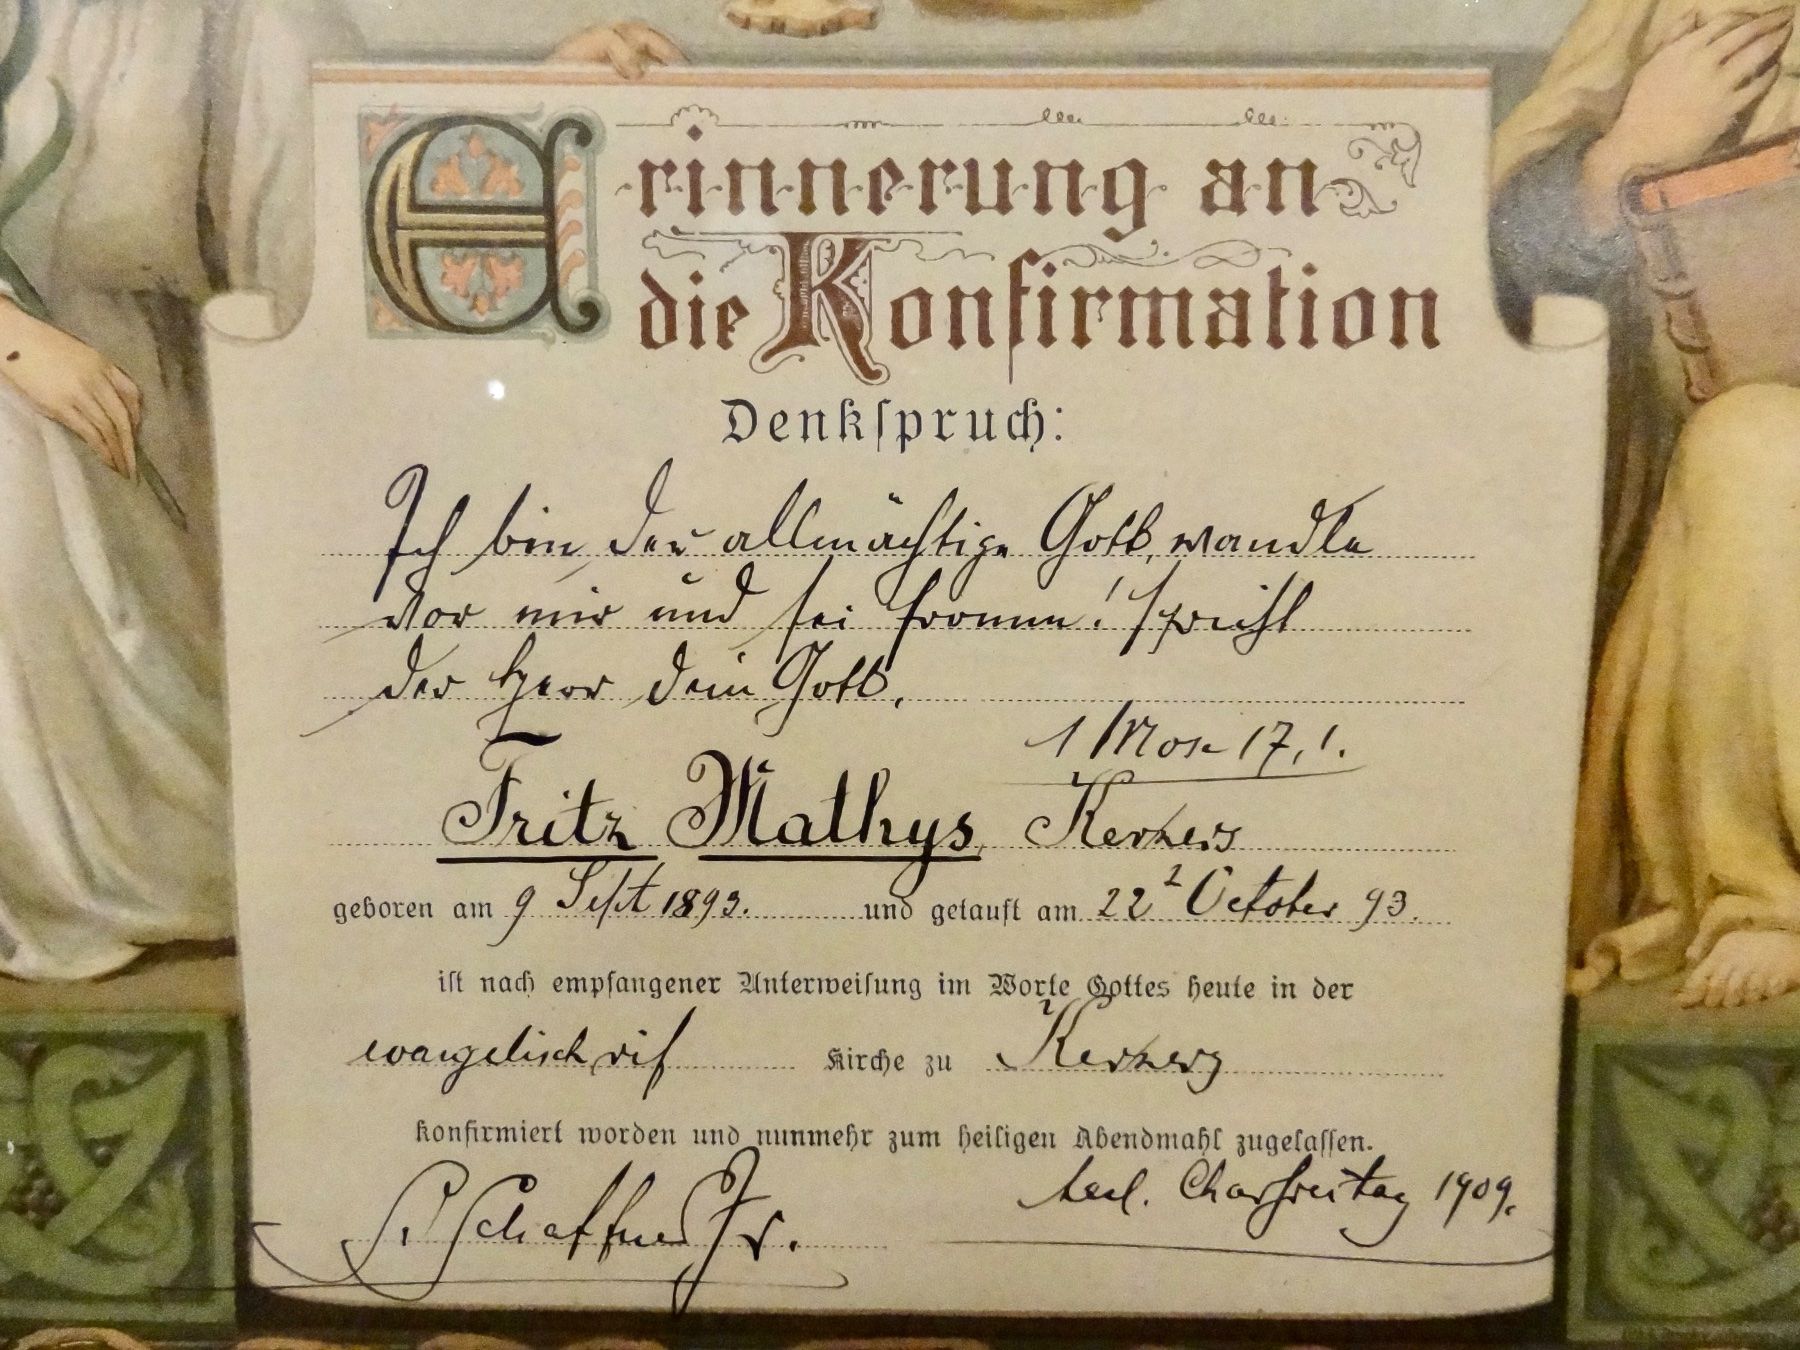 Erinnerung an
die Konfirmation
Denkspruch:
Ich bin der allmächtige Gott, wandle
vor mir und sei fromm! spricht
der Herr dein Gott.
1 Mose 17, 1.
Fritz Mathys, Kerzers
geboren am 9 Sept 1893. und getauft am 22 October 93.
ist nach empfangener Unterweisung im Worte Gottes heute in der
evangelisch ref Kirche zu Kerzers
konfirmiert worden und nunmehr zum heiligen Abendmahl zugelassen.
Charfreitag 1909.
Schaffner Pfr.